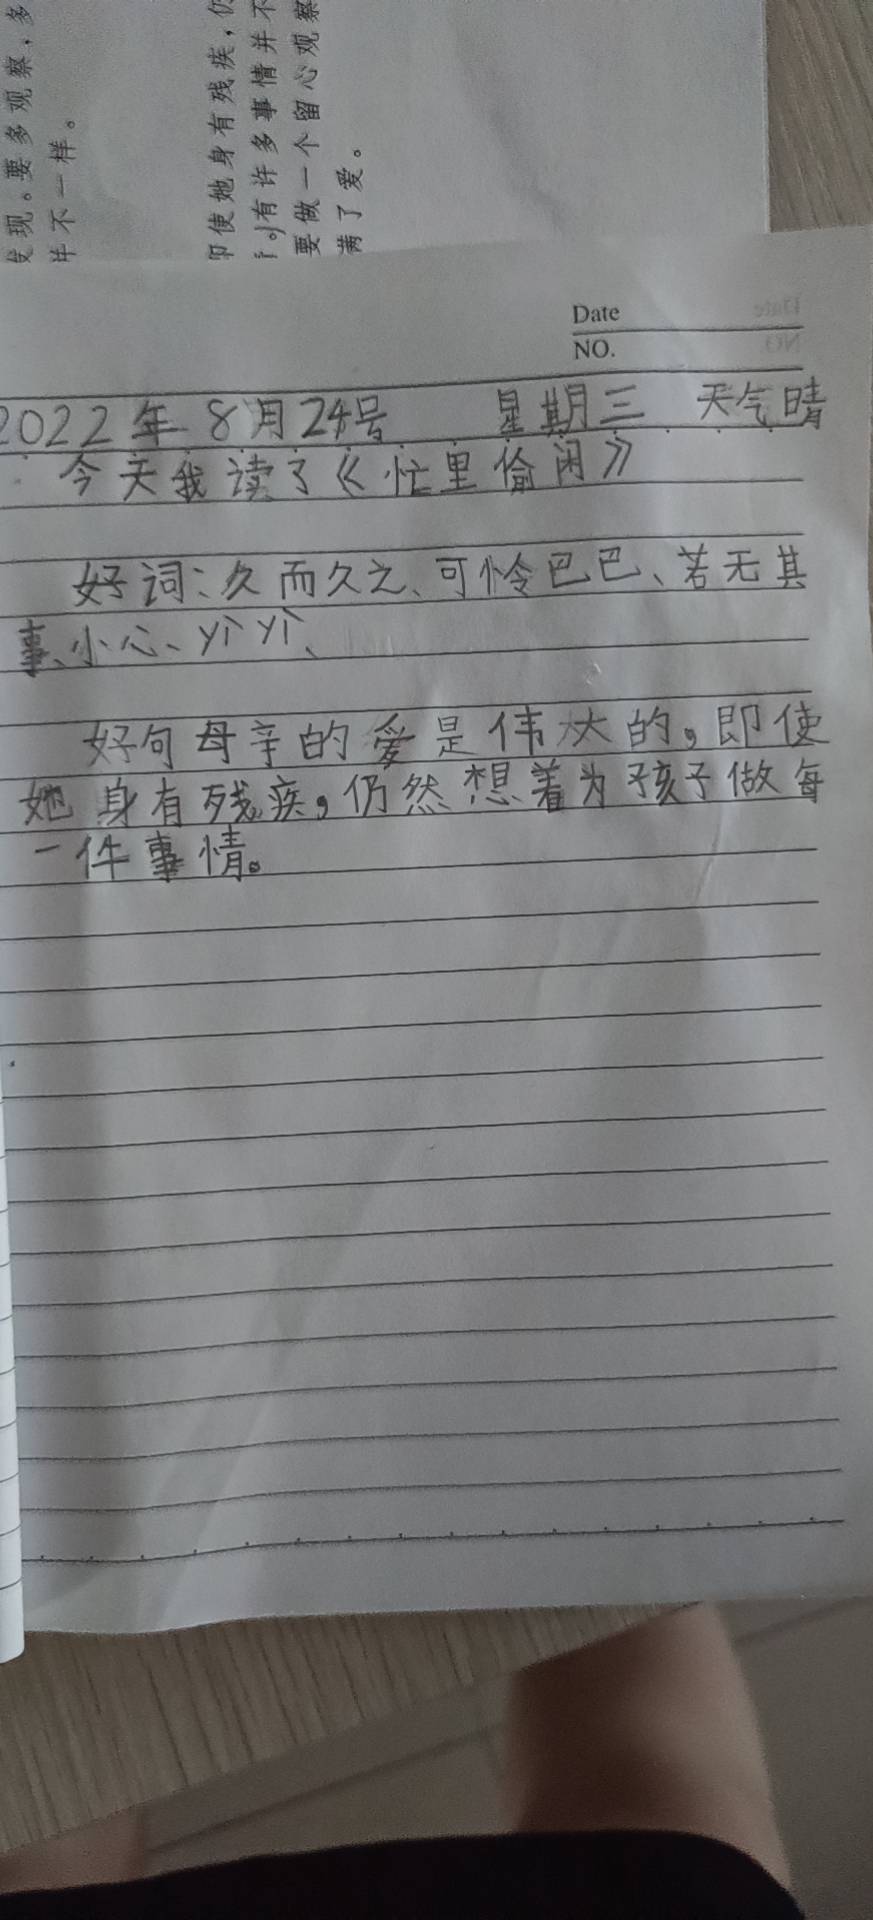 发现。要多观察,多
并不一样。
即使她身有残疾,仍
有许多事情并不
要做一个留心观察
满了爱。
Date
NO.
2022年8月24号 星期三 天气晴
今天我读了《忙里偷闲》
好词:久而久之、可怜巴巴、若无其
事、小心、
好句母亲的爱是伟大的,即使
她身有残疾,仍然想着为孩子做每
一件事情。